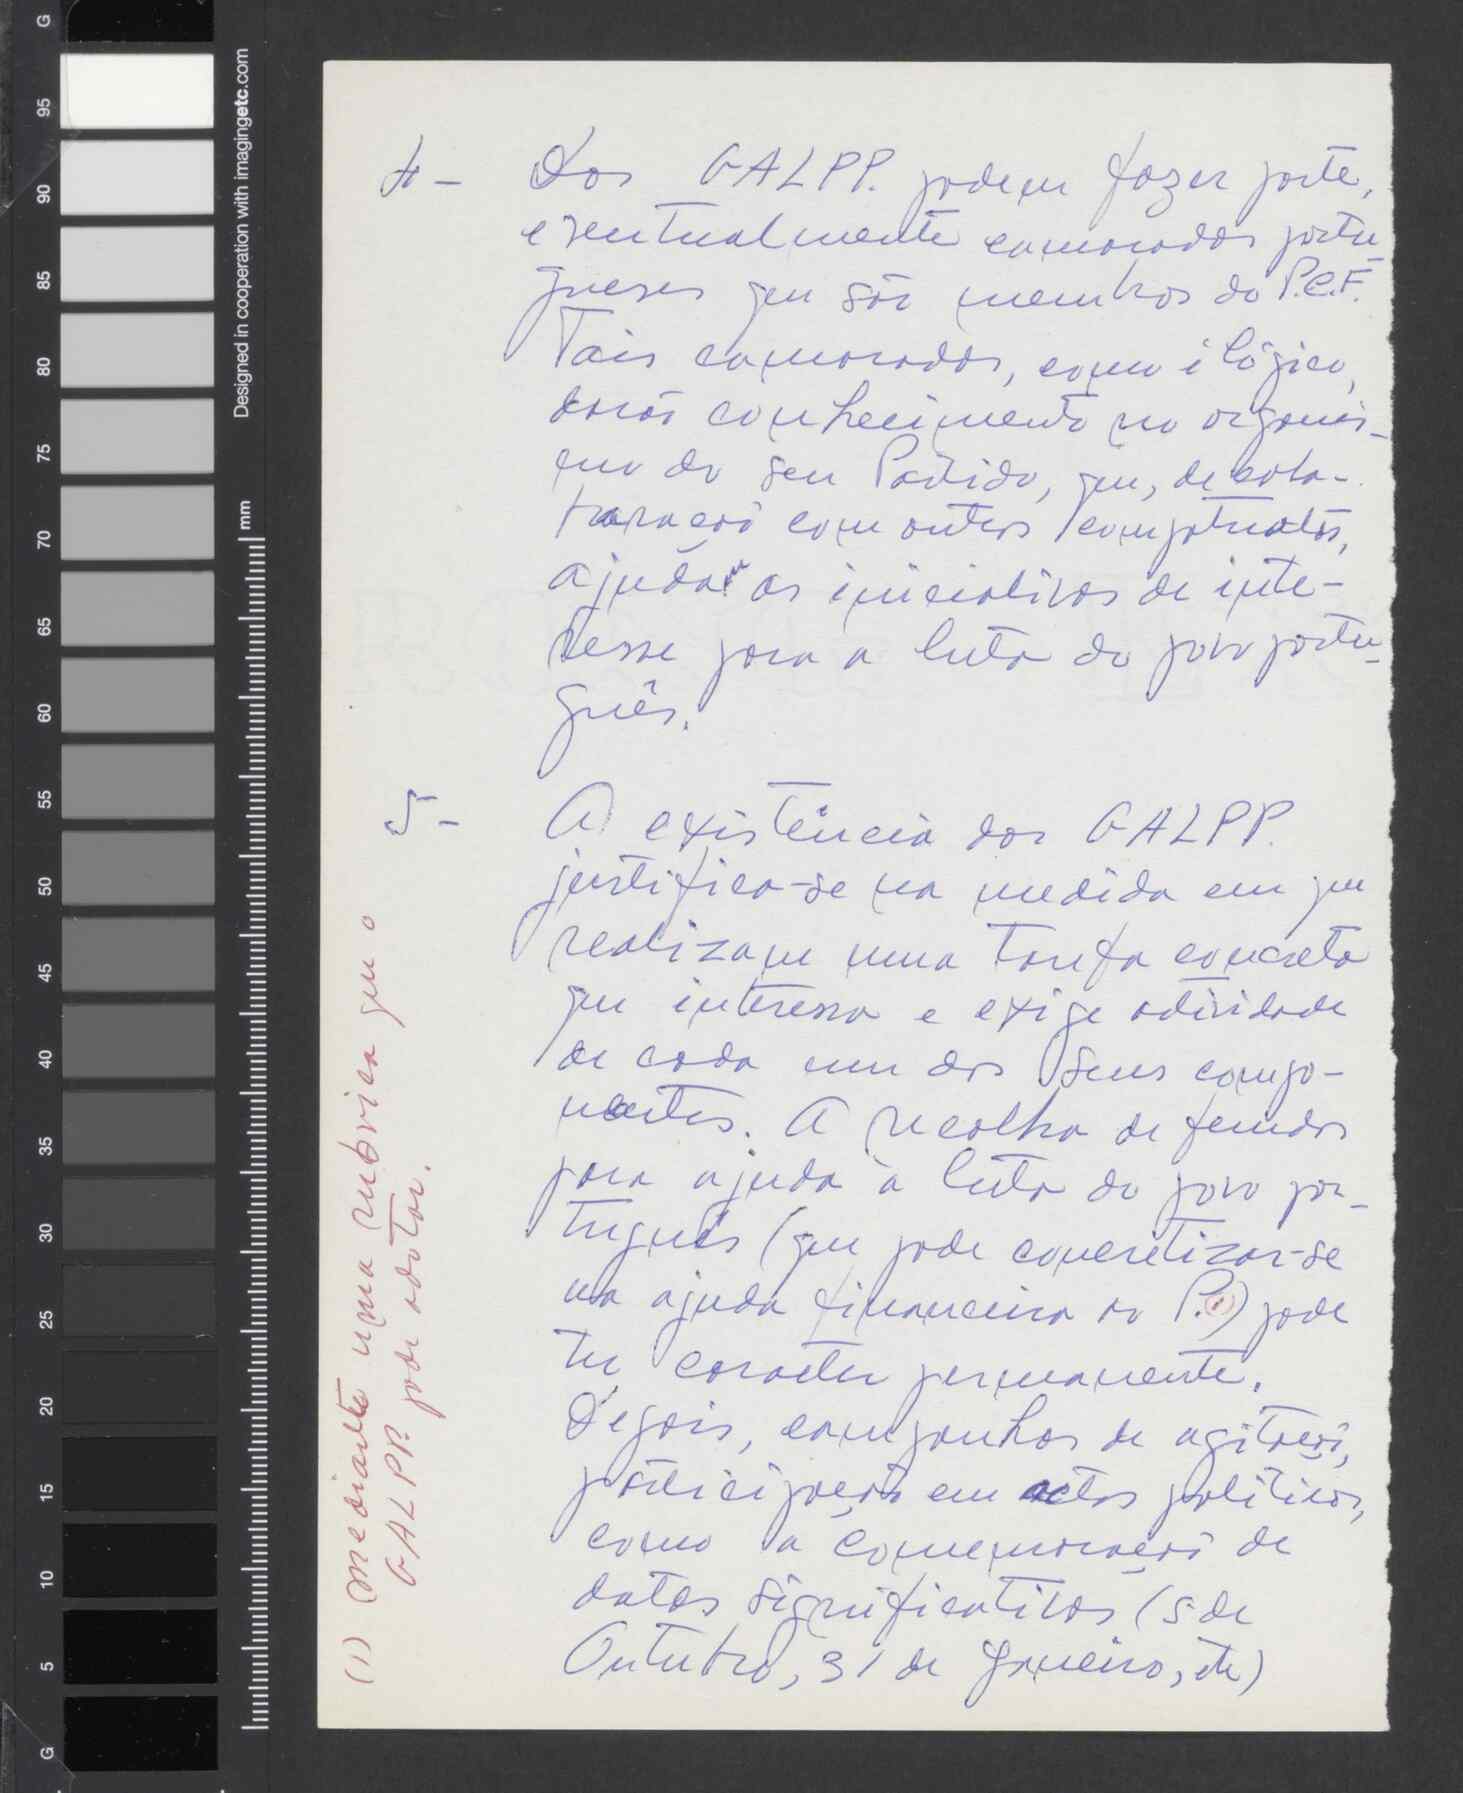 4 - Dos GALPP. podem fazer parte,
eventualmente camaradas portu-
gueses que são membros do P.C.F.
Tais camaradas, como é lógico,
darão conhecimento no organis-
mo do seu Partido, que, de cola-
boração com outros compatriotas,
ajudam as iniciativas de inte-
resse para a luta do povo portu-
guês.
5 - A existência dos GALPP.
justifica-se na medida em que
realizam uma tarefa concreta
que interessa e exige actividade
de cada um dos seus compo-
nentes. A recolha de fundos
para ajuda à luta do povo por-
tuguês (que pode concretizar-se
na ajuda financeira ao P.(1)) pode
ter caracter permanente.
Depois, campanhas de agitação,
participação em actos políticos,
como a comemoração de
datas significativas (5 de
Outubro, 31 de Janeiro, etc)
(1) mediante uma rubrica que o
GALPP. pode adotar.
G
95
90
85
80
75
70
65
60
55
50
45
40
35
30
25
20
15
10
5
G
Designed in cooperation with imagingetc.com
mm